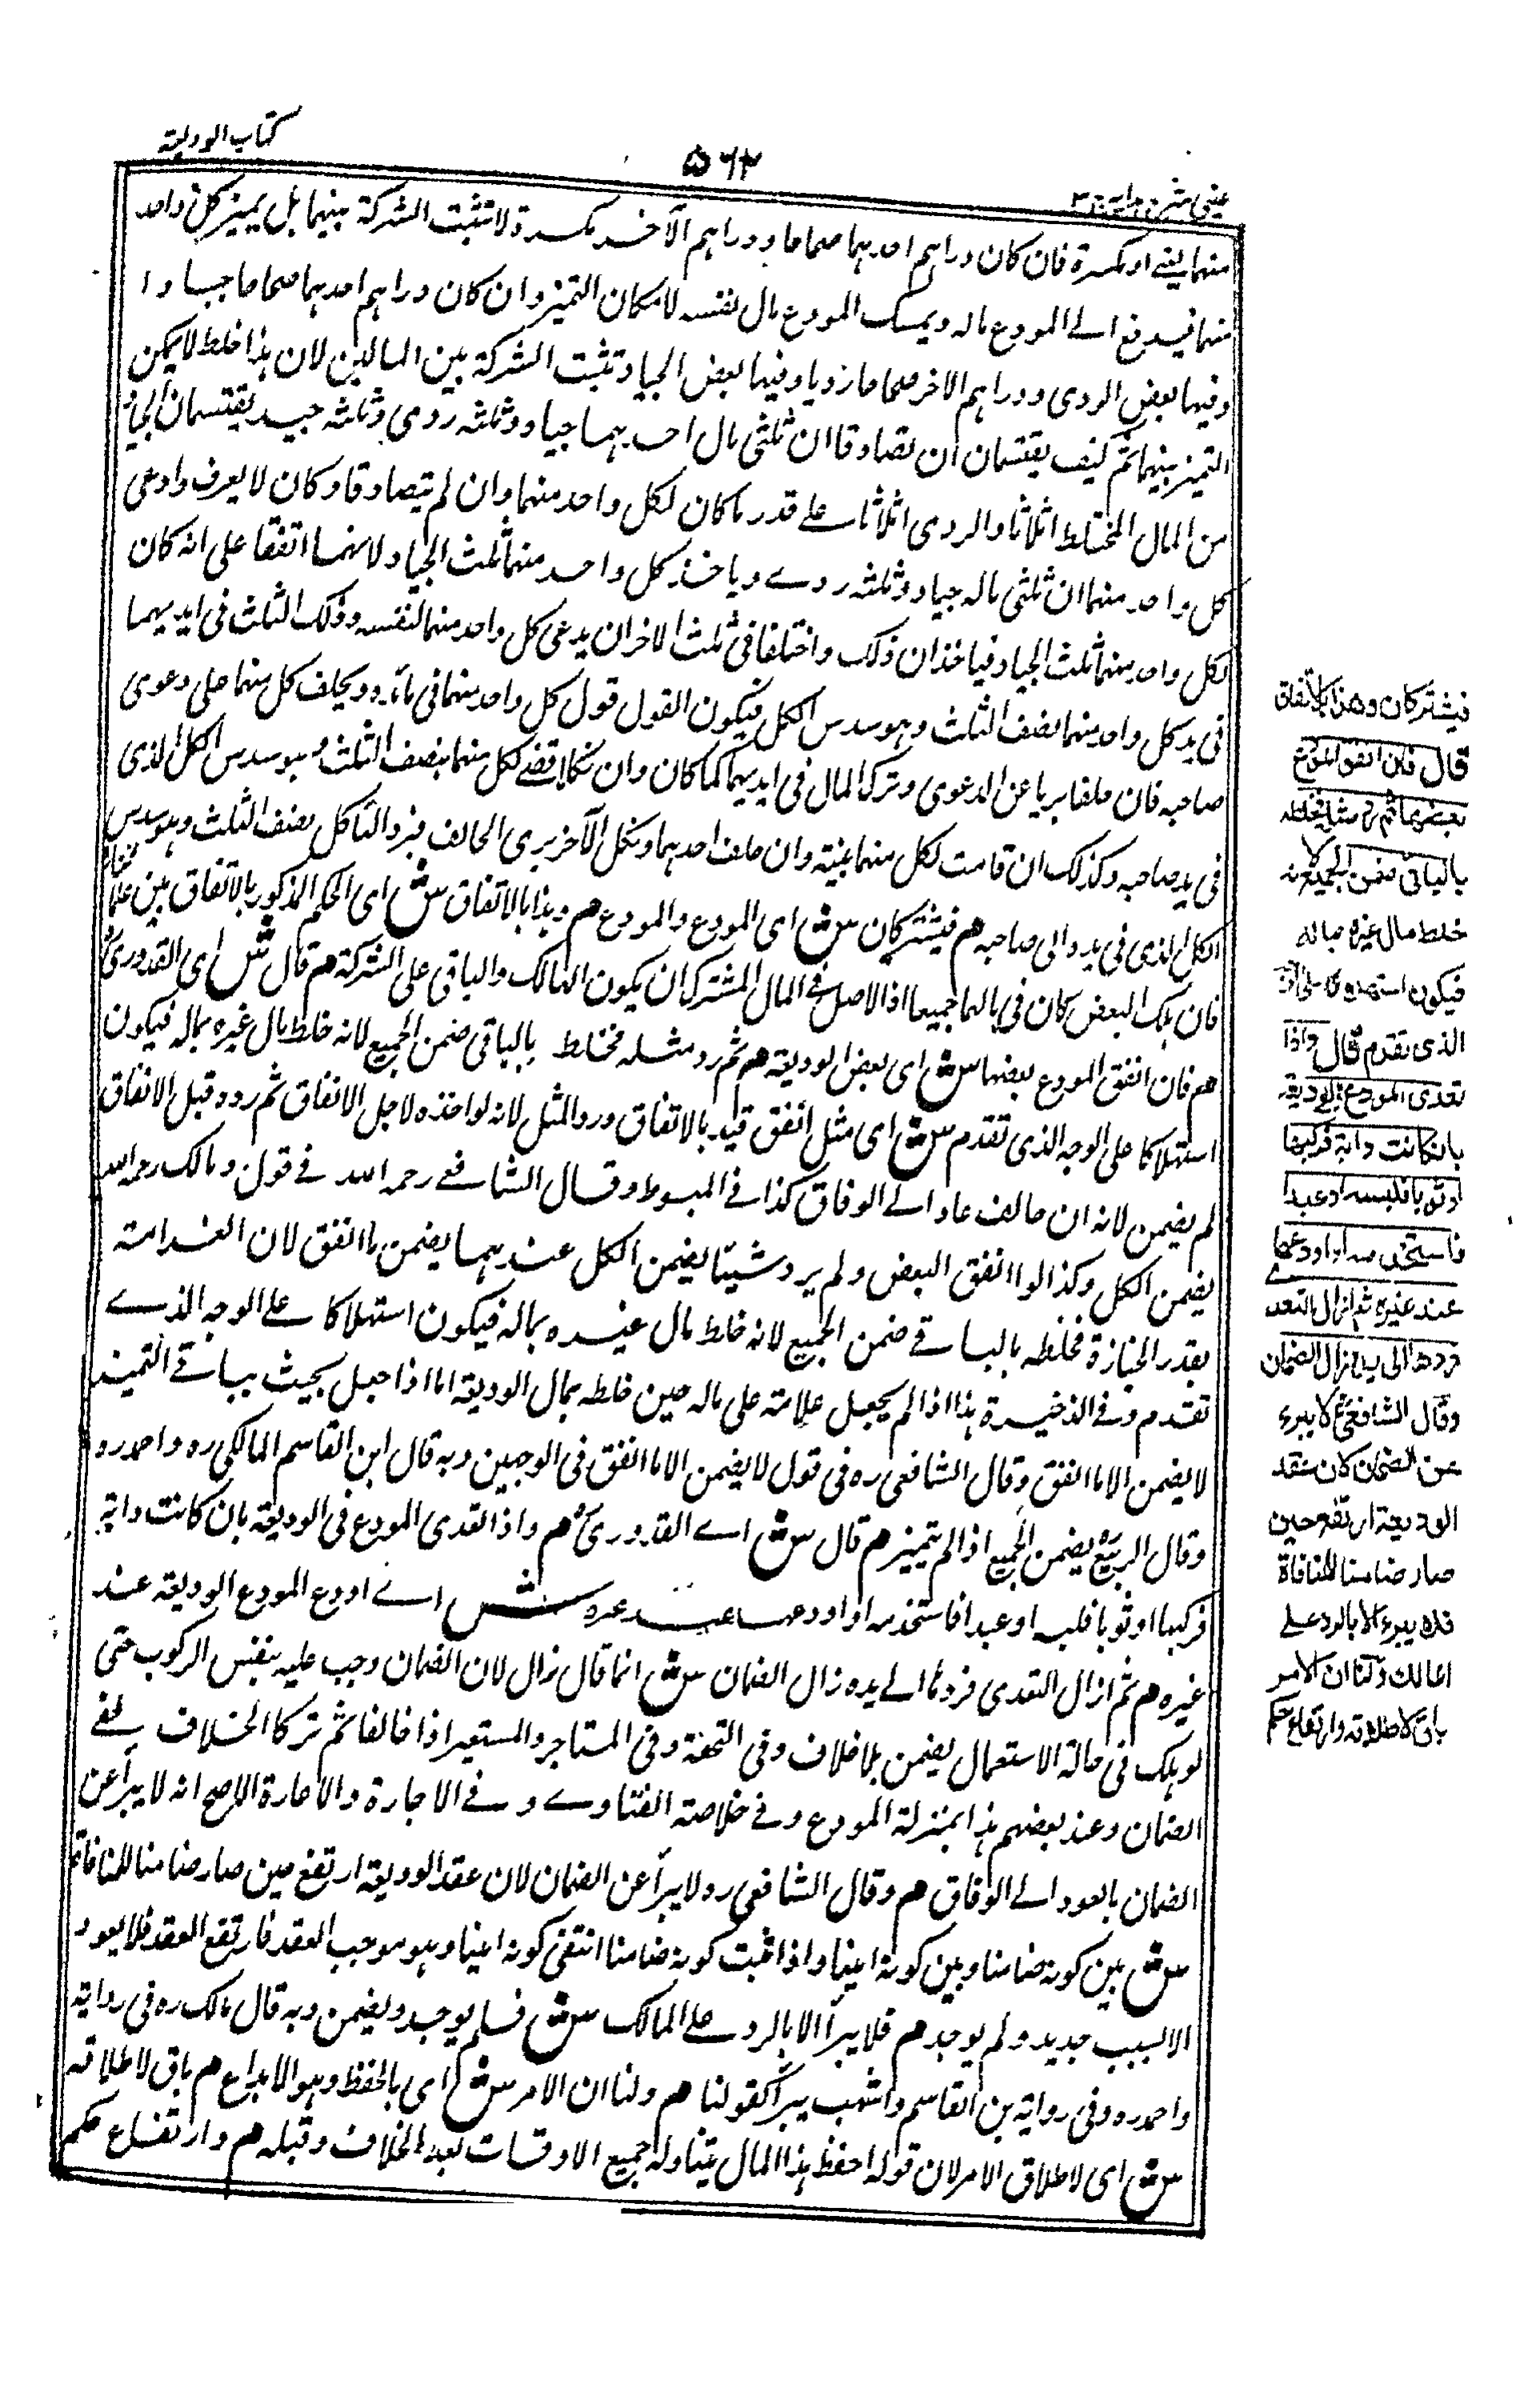 كتاب الوديعة
۵۶۳
عينى شرح هداية ج٣
منهما يعنے او مكسرة فان كان دراهم احدهما صحاحا ودراهم الآخر مكسرة لا تثبت الشركة بينهما بل يميز كل واحد
منهما فيدفع الے المودع ماله ويمسك المودع مال نفسه لامكان التميز وان كان دراهم احدهما صحاحا جيادا
وفيها بعض الردى ودراهم الاخر صحاحا رديا وفيها بعض الجياد تثبت الشركة بين المالين لان هذا خلط لا يمكن
التميز بينهما ثم كيف يقتسمان ان تصادقا ان ثلثى مال احدهما جياد وثلثه ردى وثلثه جيد يقتسمان الجياد
من المال المختلط اثلاثا والردى اثلاثا علے قدر ما كان لكل واحد منهما وان لم يتصادقا وكان لا يعرف وادعى
كل واحد منهما ان ثلثى ماله جياد وثلثه ردے وياخذ كل واحد منهما ثلث الجياد لانهما اتفقا على انه كان
لكل واحد منهما ثلث الجياد فياخذان ذلك واختلفا فى ثلث الاخر ان يدعى كل واحد منهما لنفسه وذلك الثلث فى ايديهما
فى يد كل واحد منهما نصف الثلث وهو سدس الكل فيكون القول قول كل واحد منهما فى يده ويحلف كل منهما على دعوى
صاحبه فان حلفا بريا عن الدعوى وترك المال فى ايديهما كما كان وان نكلا قضے لكل منهما بنصف الثلث وهو سدس الكل الذى
فى يد صاحبه وكذلك ان قامت لكل منهما بينة وان حلف احدهما ونكل الآخر برى الحالف فيرد الناكل نصف الثلث وهو سدس
الكل الذى فى يده الى صاحبه هم فيشتركان ش اى المودع والمودع هم وهذا بالاتفاق ش اى الحكم المذكور بالاتفاق بين علمائنا
فان هلك البعض كان فى مالهما جميعا اذ الاصل فى المال المشترك ان يكون الهالك والباقى على الشركة هم قال ش اى القدورى
هم فان انفق المودع بعضها ش اى بعض الوديعة هم ثم رد مثله فخلط بالباقى ضمن الجميع لانه خلط مال غيره بماله فيكون
استهلاكا على الوجه الذى تقدم ش اى مثل انفق قيد بالانفاق ورد المثل لانه لو اخذه لاجل الانفاق ثم رده قبل الانفاق
لم يضمن لانه ان خالف عاد الے الوفاق كذا فے المبسوط وقال الشافعے رحمه الله فے قول ومالك رحمه الله
يضمن الكل وكذا لو انفق البعض ولم يرد شيئا يضمن الكل عندهما يضمن ما انفق لان الغرامة
بقدر الجنازة فخلطه بالباقے ضمن الجميع لانه خلط مال غيره بماله فيكون استهلاكا علے الوجه الذے
تقدم وفے الذخيرة هذا اذا لم يجعل علامة على ماله حين خلطه بمال الوديعة اما اذا جعل بحيث يباقے التميز
لا يضمن الا ما انفق وقال الشافعى ره فى قول لا يضمن الا ما انفق فى الوجهين وبه قال ابن القاسم المالكى ره واحمد ره
وقال الربيع يضمن الجميع اذا لم يتميز هم قال ش اے القدورى هم واذا تعدى المودع فى الوديعة بان كانت دابة
فركبها او ثوبا فلبسه او عبدا فاستخدمه او اودعها عند غيره ش اے اودع المودع الوديعة عند
غيره هم ثم ازال التعدى فردها الے يده زال الضمان ش انما قال زال لان الضمان وجب عليه بنفس الركوب حتى
لو هلك فى حالة الاستعمال يضمن بلا خلاف وفى التحفة وفى المستاجر والمستعير اذا خالفا ثم تركا الخلاف يبقے
الضمان وعند بعضهم هذا بمنزلة المودع وفے خلاصة الفتاوے وفے الاجارة والاعارة الاصح انه لا يبرأ عن
الضمان بالعود الے الوفاق هم وقال الشافعى ره لا يبرأ عن الضمان لان عقد الوديعة ارتفع حين صار ضامنا للمنافاة
ش بين كونه ضامنا وبين كونه امينا واذا ثبت كونه ضامنا انتفى كونه امينا وهو موجب العقد فارتفع العقد فلا يعود
الا بسبب جديد ولم يوجد هم فلا يبرأ الا بالرد علے المالك ش فلم يوجد ويضمن وبه قال مالك ره فى رواية
واحمد ره وفى رواية بن القاسم واشهب يبرأ كقولنا هم ولنا ان الامر ش اى بالحفظ وهو الايداع هم باق لاطلاقه
ش اى لاطلاق الامر لان قوله احفظ هذا المال يتناول جميع الاوقات بعد الخلاف وقبله هم وارتفاع حكم
فيشتركان وهذا بالاتفاق
قال فان انفق المودع
بعضها ثم رد مثله فخلطه
بالباقى ضمن الجميع لانه
خلط مال غيره بماله
فيكون استهلاكا على الوجه
الذى تقدم قال واذا
تعدى المودع فى الوديعة
بان كانت دابة فركبها
او ثوبا فلبسه او عبدا
فاستخدمه او اودعها
عند غيره ثم ازال التعدے
فردها الى يده زال الضمان
وقال الشافعى لا يبرء
عن الضمان لان عقد
الوديعة ارتفع حين
صار ضامنا للمنافاة
فلا يبرء الا بالرد على
المالك ولنا ان الامر
باق لاطلاقه وارتفاع حكم